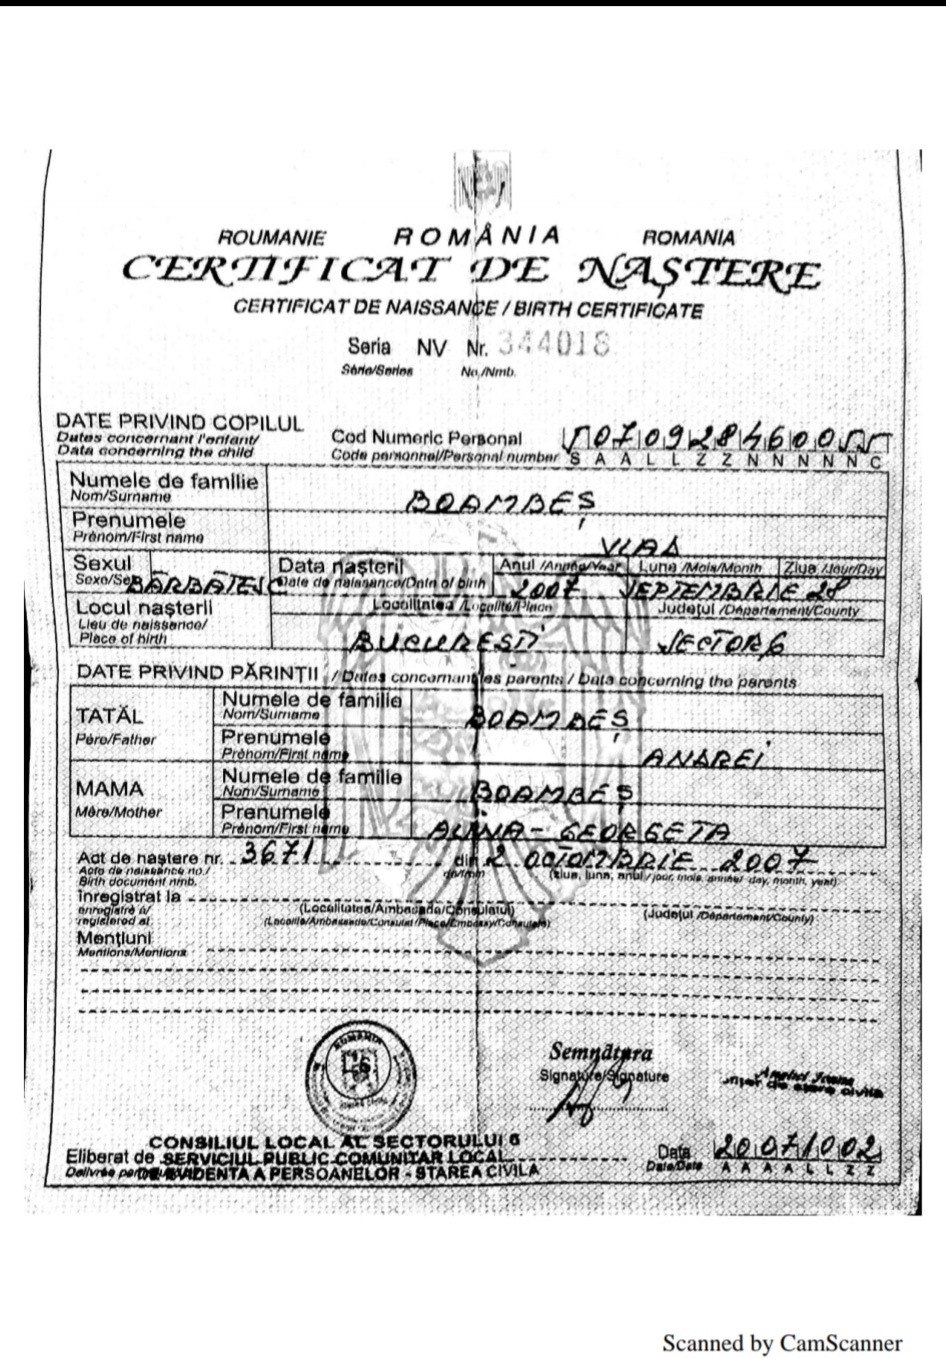 ROUMANIE ROMÂNIA ROMANIA
CERTIFICAT DE NAȘTERE
CERTIFICAT DE NAISSANCE / BIRTH CERTIFICATE
Seria NV Nr. 344018
Série/Series No./Nmb.
DATE PRIVIND COPILUL
Dates concernant l'enfant/
Data concerning the child
Cod Numeric Personal
Code personnel/Personal number S A A L L Z Z N N N N N C
Numele de familie
Nom/Surname
BOAMBEȘ
Prenumele
Prénom/First name
VLAD
Sexul
Sexe/Sex BĂRBĂTESC
Data nașterii
Date de naissance/Date of birth
Anul /Année/Year Luna /Mois/Month Ziua /Jour/Day
2007 SEPTEMBRIE 28
Locul nașterii
Lieu de naissance/
Place of birth
Localitatea /Localité/Place Județul /Département/County
BUCUREȘTI SECTOR 6
DATE PRIVIND PĂRINȚII / Dates concernant les parents / Data concerning the parents
TATĂL
Père/Father
Numele de familie
Nom/Surname
BOAMBEȘ
Prenumele
Prénom/First name
ANDREI
MAMA
Mère/Mother
Numele de familie
Nom/Surname
BOAMBEȘ
Prenumele
Prénom/First name
ALINA-GEORGETA
Act de naștere nr. 3671 din 2 OCTOMBRIE 2007
Acte de naissance no./
Birth document nmb.
(ziua, luna, anul / jour, mois, année/ day, month, year)
Înregistrat la
enregistré à/
registered at
(Localitatea/Ambasada/Consulatul)
(Localité/Ambassade/Consulat/Place/Embassy/Consulate)
(Județul /Département/County)
Mențiuni
Mentions/Mentions
ROMANIA
Semnătura
Signature/Signature
CONSILIUL LOCAL AL SECTORULUI 6
Eliberat de SERVICIUL PUBLIC COMUNITAR LOCAL
DE EVIDENTA A PERSOANELOR - STAREA CIVILA
Data 20071002
Date/Date A A A A L L Z Z
Scanned by CamScanner